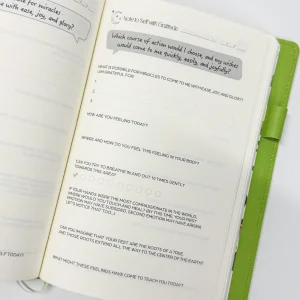 for miracles
with ease, joy, and glory?
Note to Self with Gratitude
Which course of action would I choose, and my wishes
would come to me quickly, easily, and joyfully?
WHAT IS POSSIBLE FOR MIRACLES TO COME TO ME WITH EASE, JOY, AND GLORY?
I AM GRATEFUL FOR:
1.
2.
3.
HOW ARE YOU FEELING TODAY?
WHERE AND HOW DO YOU FEEL THIS FEELING IN YOUR BODY?
CAN YOU TRY TO BREATHE IN AND OUT 10 TIMES GENTLY
TOWARDS THIS AREA?
IF YOUR HANDS WERE THE MOST COMPASSIONATE IN THE WORLD,
WHERE WOULD YOU TOUCH AND HEAL? BY THIS TIME, YOUR FIRST
EMOTION MAY HAVE SUBSIDED, SECOND EMOTION MAY HAVE ARISEN.
LET'S NOTICE THAT TOO...
CAN YOU IMAGINE THAT YOUR FEET ARE THE ROOTS OF A TREE
AND THOSE ROOTS EXTEND ALL THE WAY TO THE CENTER OF THE EARTH?
WHAT MIGHT THESE FEELINGS HAVE COME TO TEACH YOU TODAY?
SELF TODAY?